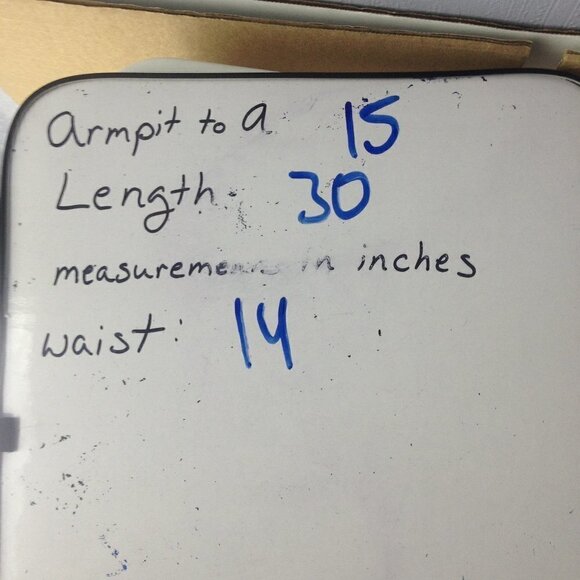 armpit to a 15
Length 30
in inches
waist: 14